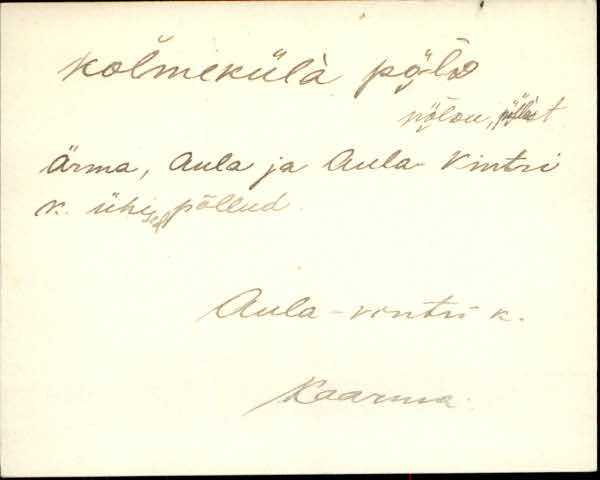 kolmekülà põlD
põlou, põllust
ärma, Aula ja Aula-Vintri
k. ühised põllud.
Aula-vintri k.
Kaarma.